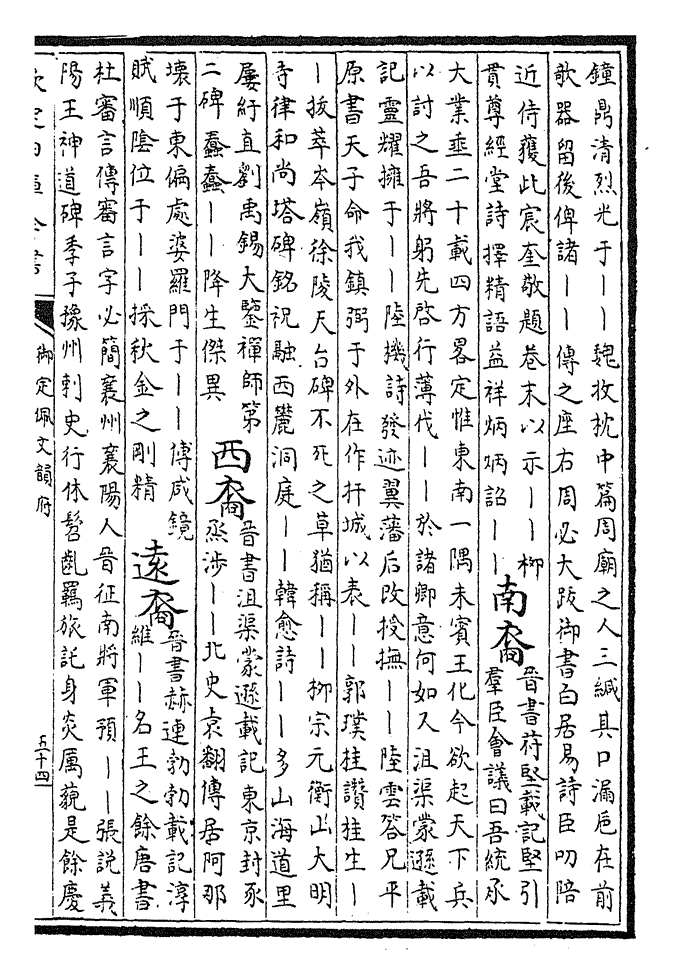 鐘鼎清烈光于丨丨魏收枕中篇周廟之人三緘其口漏巵在前
歌器留後俾諸丨丨傳之座右周必大跋御書白居易詩臣叨陪
近侍獲此宸奎敬題卷末以示丨丨柳
貫尊經堂詩擇精語益祥炳炳詔丨丨
南裔
晉書苻堅載記堅引
羣臣會議曰吾統承
大業垂二十載四方畧定惟東南一隅未賓王化今欲起天下兵
以討之吾將躬先啓行薄伐丨丨於諸卿意何如又沮渠蒙遜載
記靈耀擁于丨丨陸機詩發迹翼藩后改授撫丨丨陸雲答兄平
原書天子命我鎮弼于外在作扞城以表丨丨郭璞桂讚桂生丨
丨拔萃岑嶺徐陵天台碑不死之草猶稱丨丨柳宗元衡山大明
寺律和尚塔碑銘祝融西麓洞庭丨丨韓愈詩丨丨多山海道里
屢紆直劉禹錫大鑒禪師第
二碑蠢蠢丨丨降生傑異
西裔
晉書沮渠蒙遜載記東京封豕
烝涉丨丨北史袁翻傳居阿那
壞于東偏處婆羅門于丨丨傅咸鏡
賦順陰位于丨丨採秋金之剛精
遠裔
晉書赫連勃勃載記淳
維丨丨名王之餘唐書
杜審言傳審言字必簡襄州襄陽人晉征南將軍預丨丨張説義
陽王神道碑季子豫州刺史行休髫齓羈旅託身炎厲藐是餘慶
欽定四庫全書
御定佩文韻府
五十四